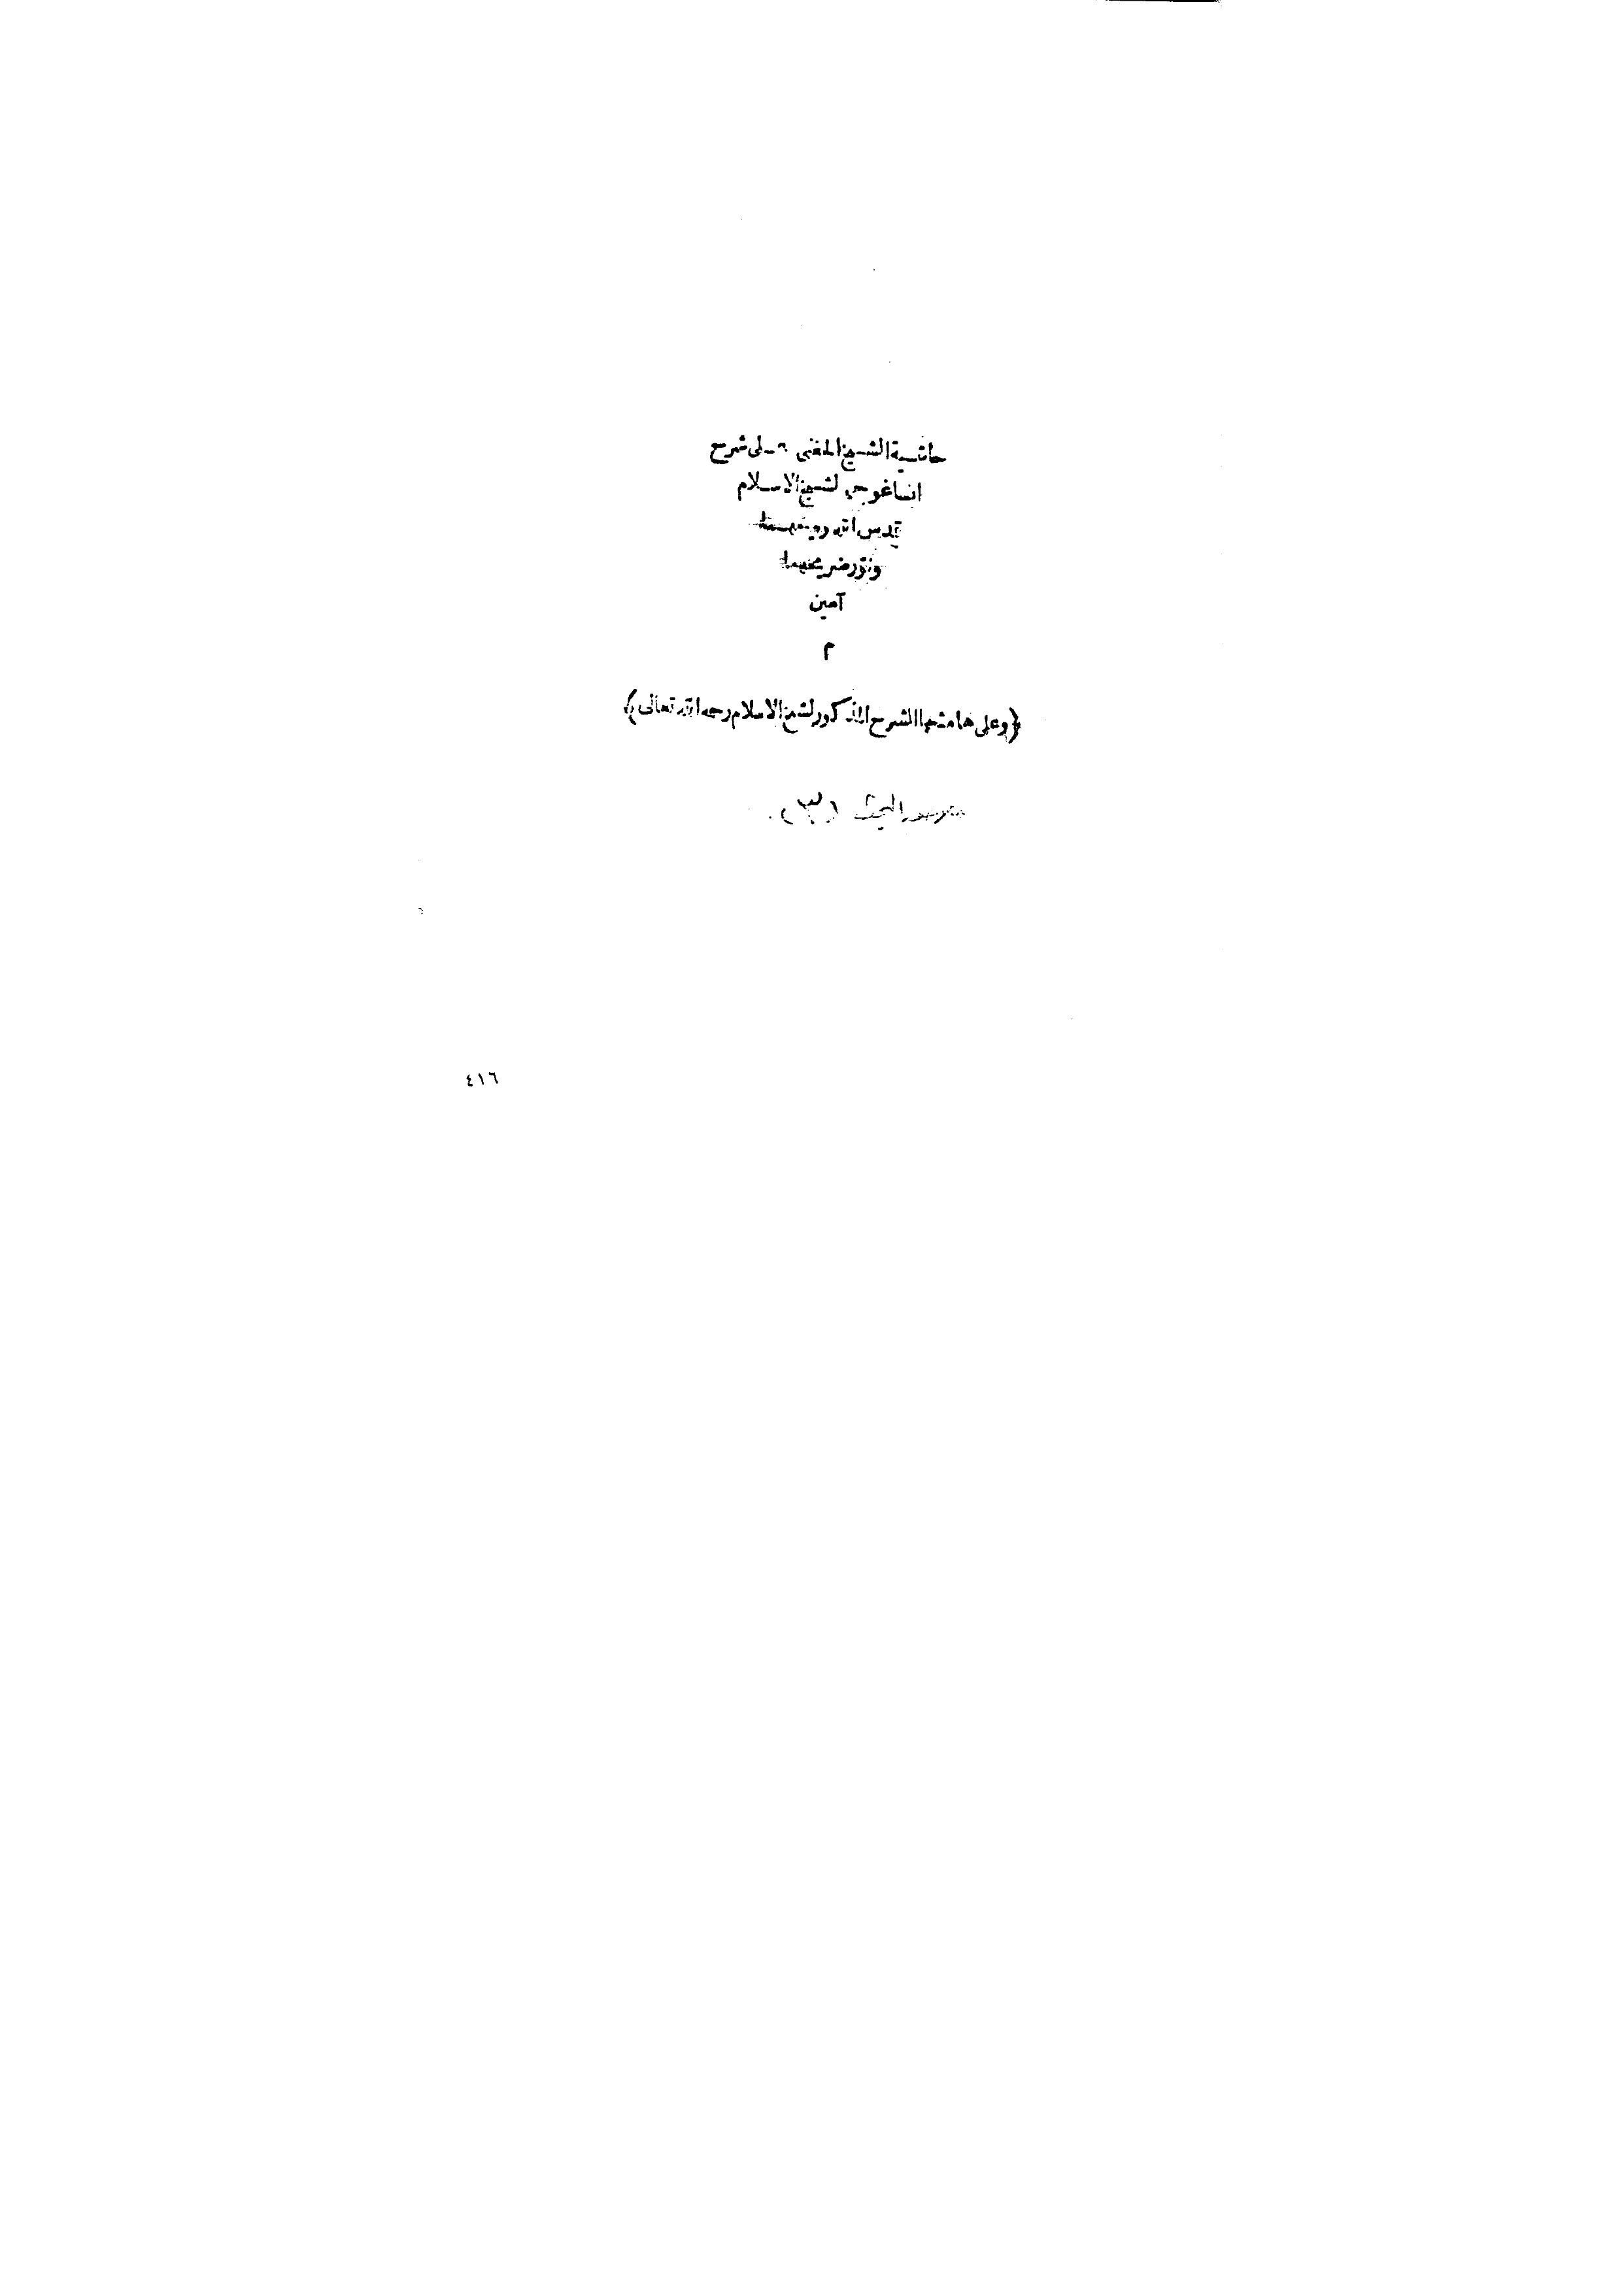 حاشية الشيخ الحفنى على شرح
ايساغوجى لشيخ الاسلام
قدس الله روحهما
ونور ضريحهما
آمين
م
﴿وعلى هامشها الشرح المذكور لشيخ الاسلام رحمه الله تعالى﴾
٤١٦